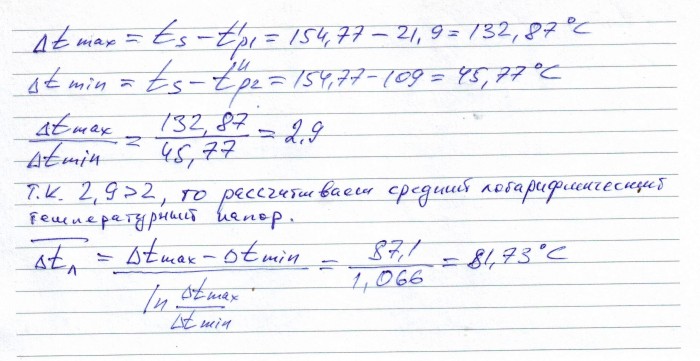 Δt max = ts − t'p1 = 154,77 − 21,9 = 132,87 °C
Δt min = ts − t''p2 = 154,77 − 109 = 45,77 °C
Δt max / Δt min = 132,87 / 45,77 = 2,9
Т.к. 2,9 > 2, то рассчитываем средний логарифмический
температурный напор.
Δtл = Δt max − Δt min / ln Δt max / Δt min = 87,1 / 1,066 = 81,73 °C